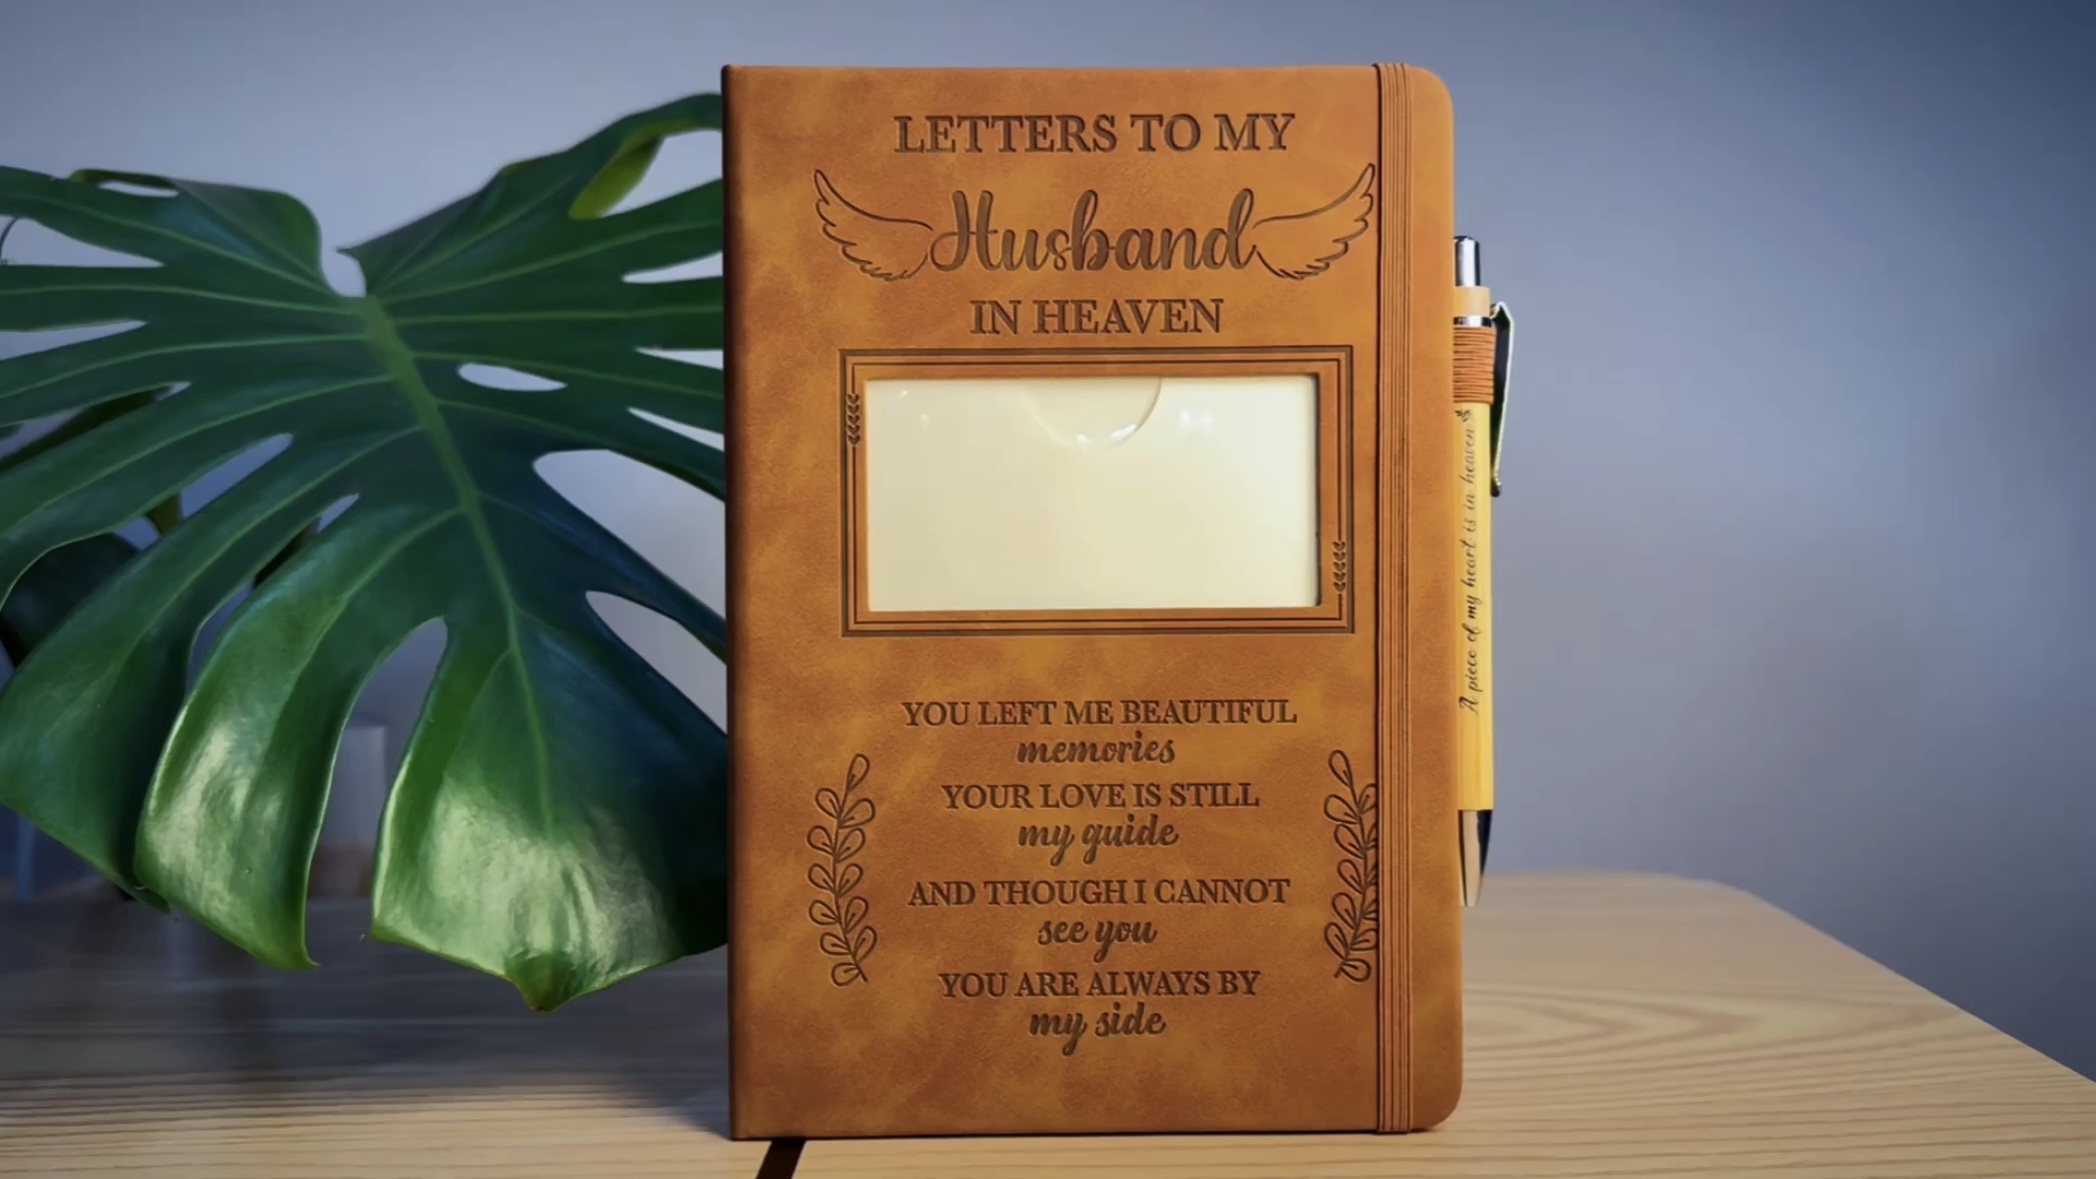 LETTERS TO MY
Husband
IN HEAVEN
YOU LEFT ME BEAUTIFUL
memories
YOUR LOVE IS STILL
my guide
AND THOUGH I CANNOT
see you
YOU ARE ALWAYS BY
my side
A piece of my heart is in heaven